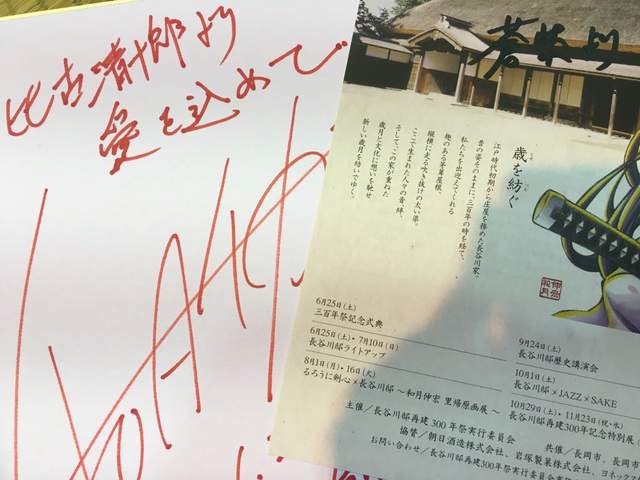 比古清十郎より
愛を込めて
歳を紡ぐ
江戸時代初期から庄屋を務めた長谷川家。
昔の姿そのままに、三百年の時を経て、
私たちを出迎えてくれる
趣のある茅葺屋根、
縦横に走る吹き抜けの太い梁。
ここで生まれた人々の音、絆、
そして、この家が重ねた
歳月と文化に想いを馳せ
新しい歳月を紡いでゆく。
6月25日(土)
三百年祭記念式典
6月25日(土)・7月10日(日)
長谷川邸ライトアップ
8月1日(月)・16日(火)
るろうに剣心×長谷川邸 ～和月伸宏 里帰原画展～
9月24日(土)
長谷川邸歴史講演会
10月1日(土)
長谷川邸×JAZZ×SAKE
10月29日(土)・11月23日(祝・水)
長谷川邸再建300年記念特別展
主催／長谷川邸再建300年祭実行委員会
共催／長岡市、長岡市
協賛／朝日酒造株式会社、岩塚製菓株式会社、ヨネックス
お問い合わせ／長谷川邸再建300年祭実行委員会